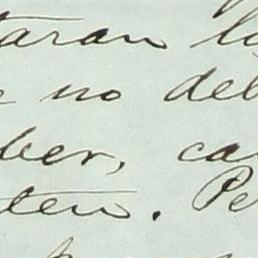 taran lo
no deb
ber, ca
ten. Pe